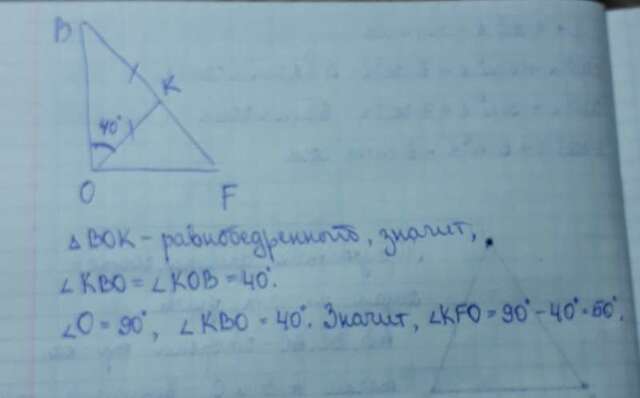 B
K
40°
O
F
△BOK - равнобедренного, значит,
∠KBO = ∠KOB = 40°.
∠O = 90°, ∠KBO = 40°. Значит, ∠KFO = 90° - 40° = 50°.